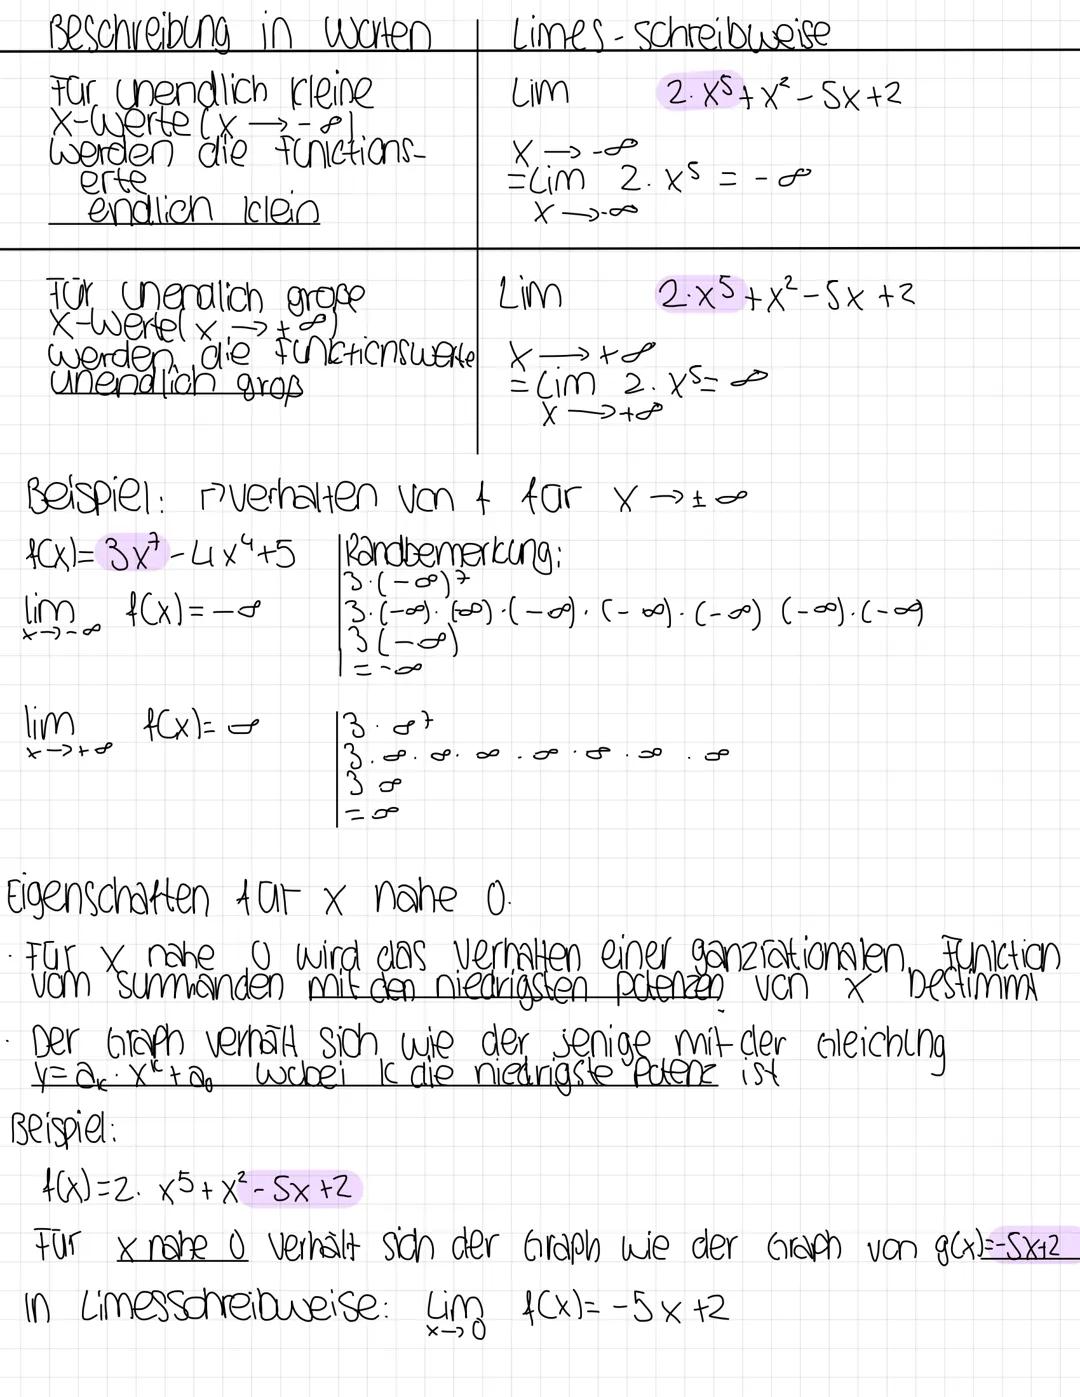 Beschreibung in Worten | Limes-schreibweise
Für unendlich kleine
x-Werte (x → -∞)
werden die funktions-
erte
endlich klein
Lim 2·x⁵+x²-5x+2
x → -∞
=Lim 2·x⁵ = -∞
x → -∞
Für unendlich große
x-Werte( x → +∞)
werden die funktionswerte
unendlich groß
Lim 2·x⁵+x²-5x+2
x → +∞
=Lim 2·x⁵=∞
x → +∞
Beispiel: ↱verhalten von f für x → ±∞
f(x)=3x⁷-4x⁴+5
lim f(x)=-∞
x→-∞
Randbemerkung:
3·(-∞)⁷
3·(-∞)·(∞)·(-∞)·(-∞)·(-∞) (-∞)·(-∞)
3(-∞)
=-∞
lim f(x)=∞
x→+∞
3·∞⁷
3·∞·∞·∞·∞·∞·∞·∞
3 ∞
=∞
Eigenschaften für x nahe 0.
· Für x nahe 0 wird das Verhalten einer ganzrationalen Funktion
vom summanden mit den niedrigsten potenzen von x bestimmt
· Der Graph verhält sich wie der jenige mit der Gleichung
y=aₖ·xᵏ+a₀ wobei k die niedrigste Potenz ist
Beispiel:
f(x)=2·x⁵+x²-5x+2
Für x nahe 0 verhält sich der Graph wie der Graph von g(x)=-5x+2
in Limesschreibweise: Lim f(x)=-5x+2
x→0